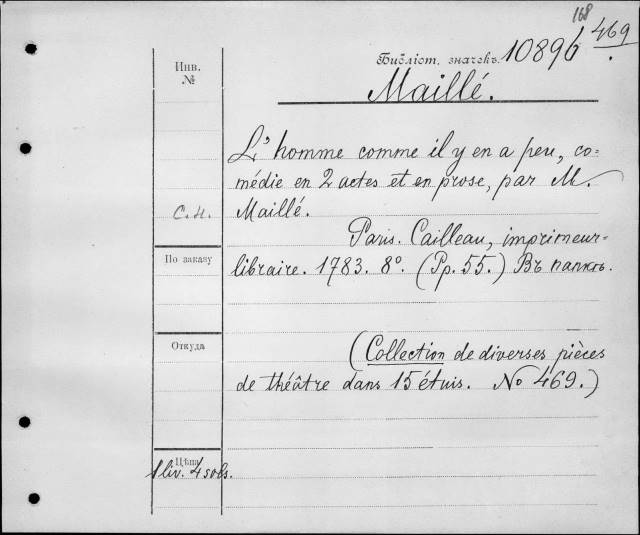 168
Библіот. значекъ. 10896 469.
Инв.
№
Maillé.
L'homme comme il y en a peu, co-
médie en 2 actes et en prose, par M.
С.Н. Maillé.
Paris. Cailleau, imprimeur-
По заказу
libraire. 1783. 8°. (Pp. 55.) Въ папкѣ.
Откуда
(Collection de diverses pièces
de théâtre dans 15 étuis. No 469.)
Цѣна
1 liv. 4 sols.